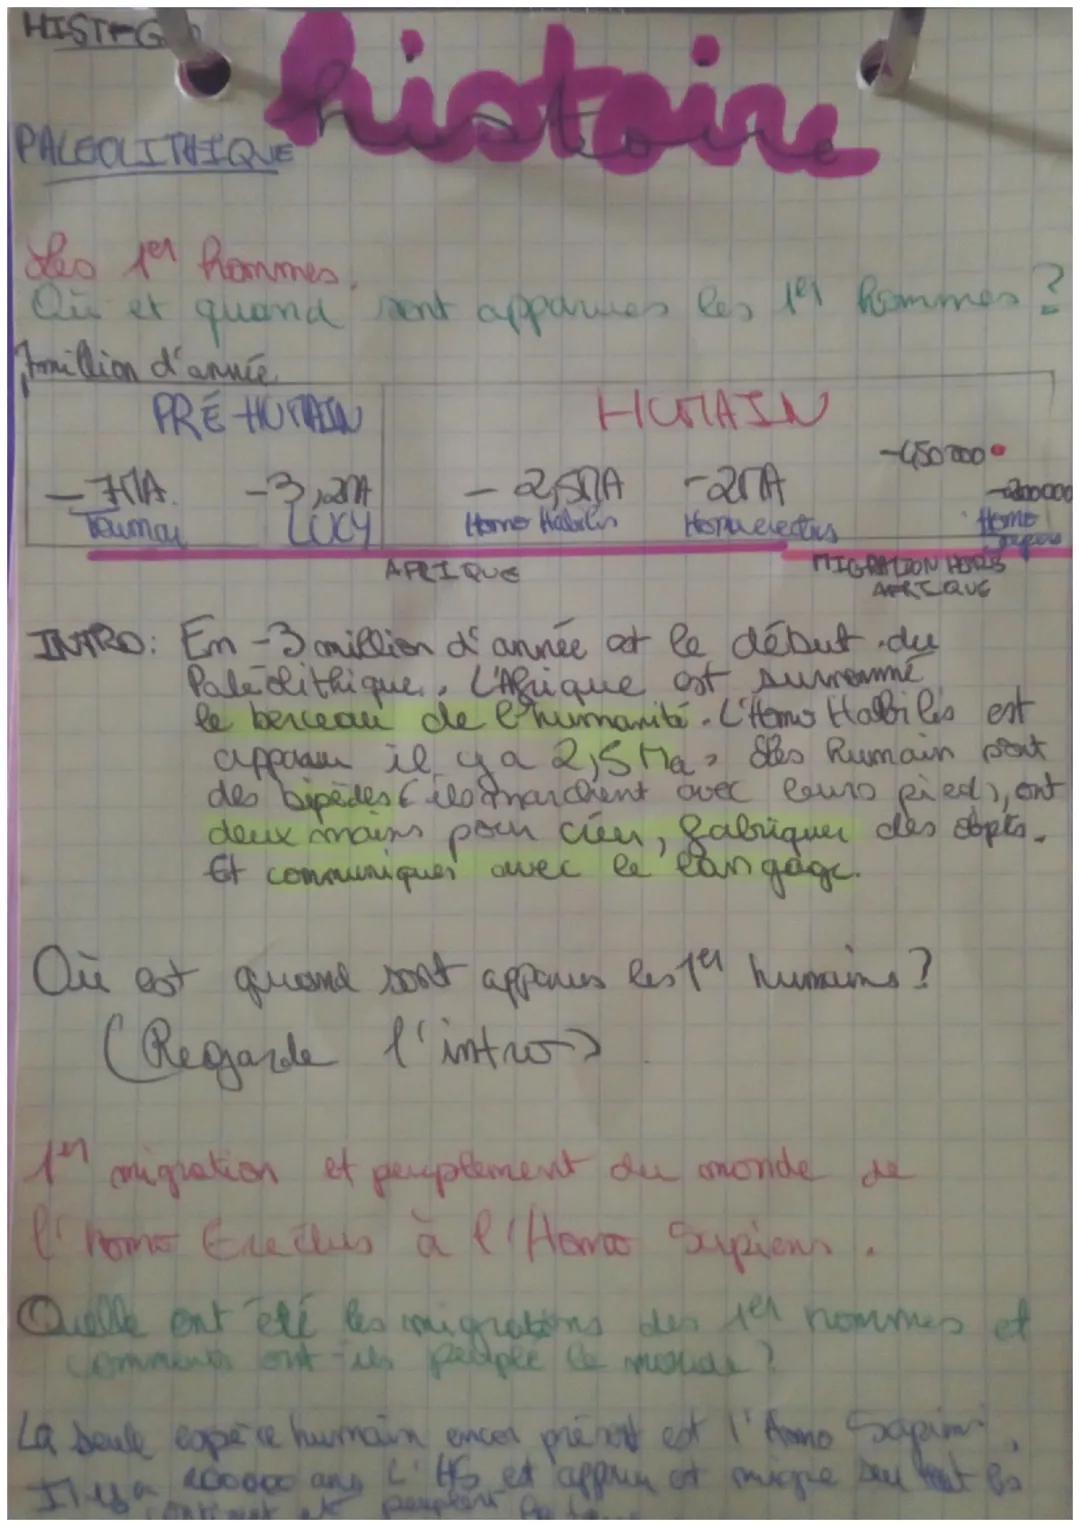 histoire
PALEOLITHIQUE
Les 1er hommes.
Où et quand sont apparues les 1er hommes ?
7 million d'année
PRÉ-HUMAIN HUMAIN
-450 000
-7MA. -3,2MA -2,5MA -2MA -200000
Toumai LUCY Homo Habilis Homo erectus Homo
AFRIQUE MIGRATION HORS
AFRIQUE
INTRO: En -3 million d'année est le début du
Paléolithique. L'Afrique est surnommé
le berceau de l'humanité. L'Homo Habilis est
apparu il y a 2,5 Ma. Les humain sont
des bipèdes (ils marchent avec leurs pied), ont
deux mains pour créer, fabriquer des objets.
Et communiquer avec le langage.
Où est quand sont apparus les 1er humains ?
(Regarde l'intro)
1er migration et peuplement du monde de
l'homo Erectus à l'Homo Sapiens.
Quelle ont été les migrations des 1er hommes et
comment ont-ils peuplé le monde ?
La seule espèce humain encor présent est l'Homo Sapiens,
Il y a 200000 ans L'HS est apparu et migre sur tout les